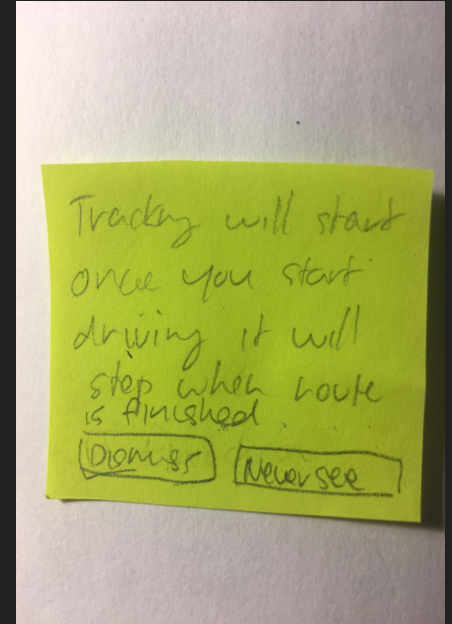 Tracking will start
once you start
driving it will
stop when route
is finished.
Dismiss Never see